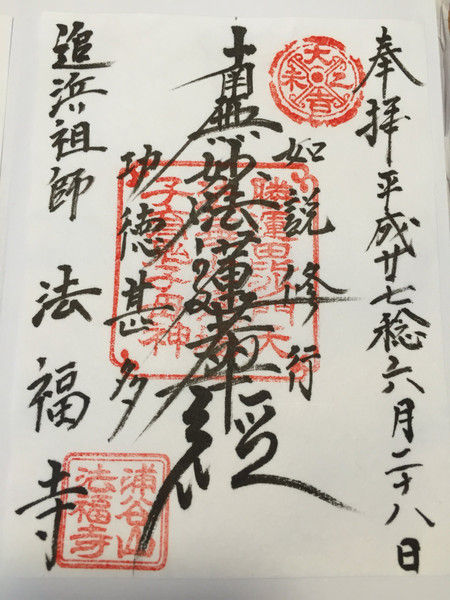 奉拝 平成廿七稔六月二十八日
如説修行
南無妙法蓮華経
功徳甚多
追浜祖師 法福寺
子育鬼子母神
浦谷山
法福寺